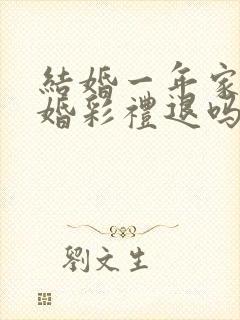 結婚一年家
婚彩禮退吗
劉文生